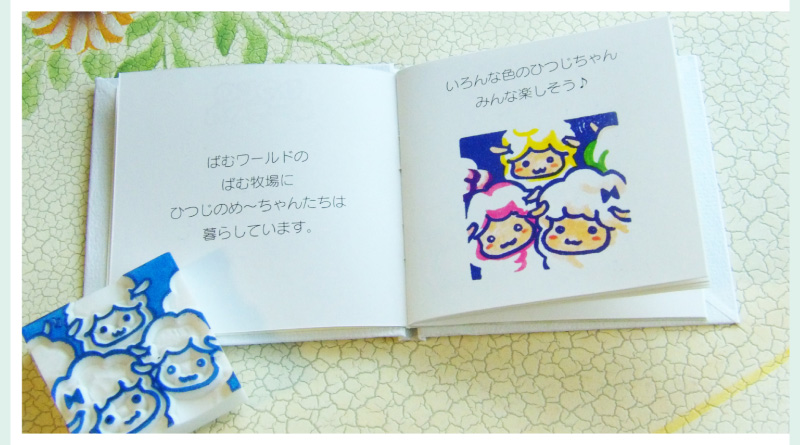 ばむワールドの
ばむ牧場に
ひつじのめ～ちゃんたちは
暮らしています。
いろんな色のひつじちゃん
みんな楽しそう♪